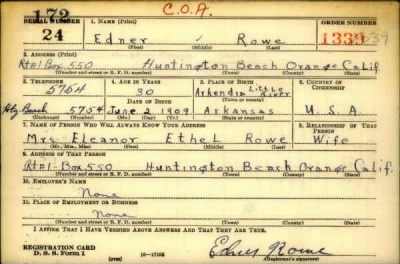 172 C.O.A.
SERIAL NUMBER 1. NAME (Print) ORDER NUMBER
24 Edner Rowe 1339 39
(First) (Middle) (Last)
2. ADDRESS (Print)
Rt#1-Box 550 Huntington Beach Orange Calif
(Number and street or R. F. D. number) (Town) (County) (State)
3. TELEPHONE 4. AGE IN YEARS 5. PLACE OF BIRTH 6. COUNTRY OF CITIZENSHIP
5754 30 Little River
DATE OF BIRTH (Town or county)
Beach 5754 June 2 1909 Arkansas U.S.A.
(Exchange) (Number) (Mo.) (Day) (Yr.) (State or country)
7. NAME OF PERSON WHO WILL ALWAYS KNOW YOUR ADDRESS 8. RELATIONSHIP OF THAT PERSON
Mrs. Eleanor Ethel Rowe Wife
(Mr., Mrs., Miss) (First) (Middle) (Last)
9. ADDRESS OF THAT PERSON
Rt#1-Box 550 Huntington Beach Orange Calif.
(Number and street or R. F. D. number) (Town) (County) (State)
10. EMPLOYER'S NAME
None
11. PLACE OF EMPLOYMENT OR BUSINESS
None
(Number and street or R. F. D. number) (Town) (County) (State)
I AFFIRM THAT I HAVE VERIFIED ABOVE ANSWERS AND THAT THEY ARE TRUE.
REGISTRATION CARD
D. S. S. Form 1 (over) 16—17105 Edner Rowe
(Registrant's signature)